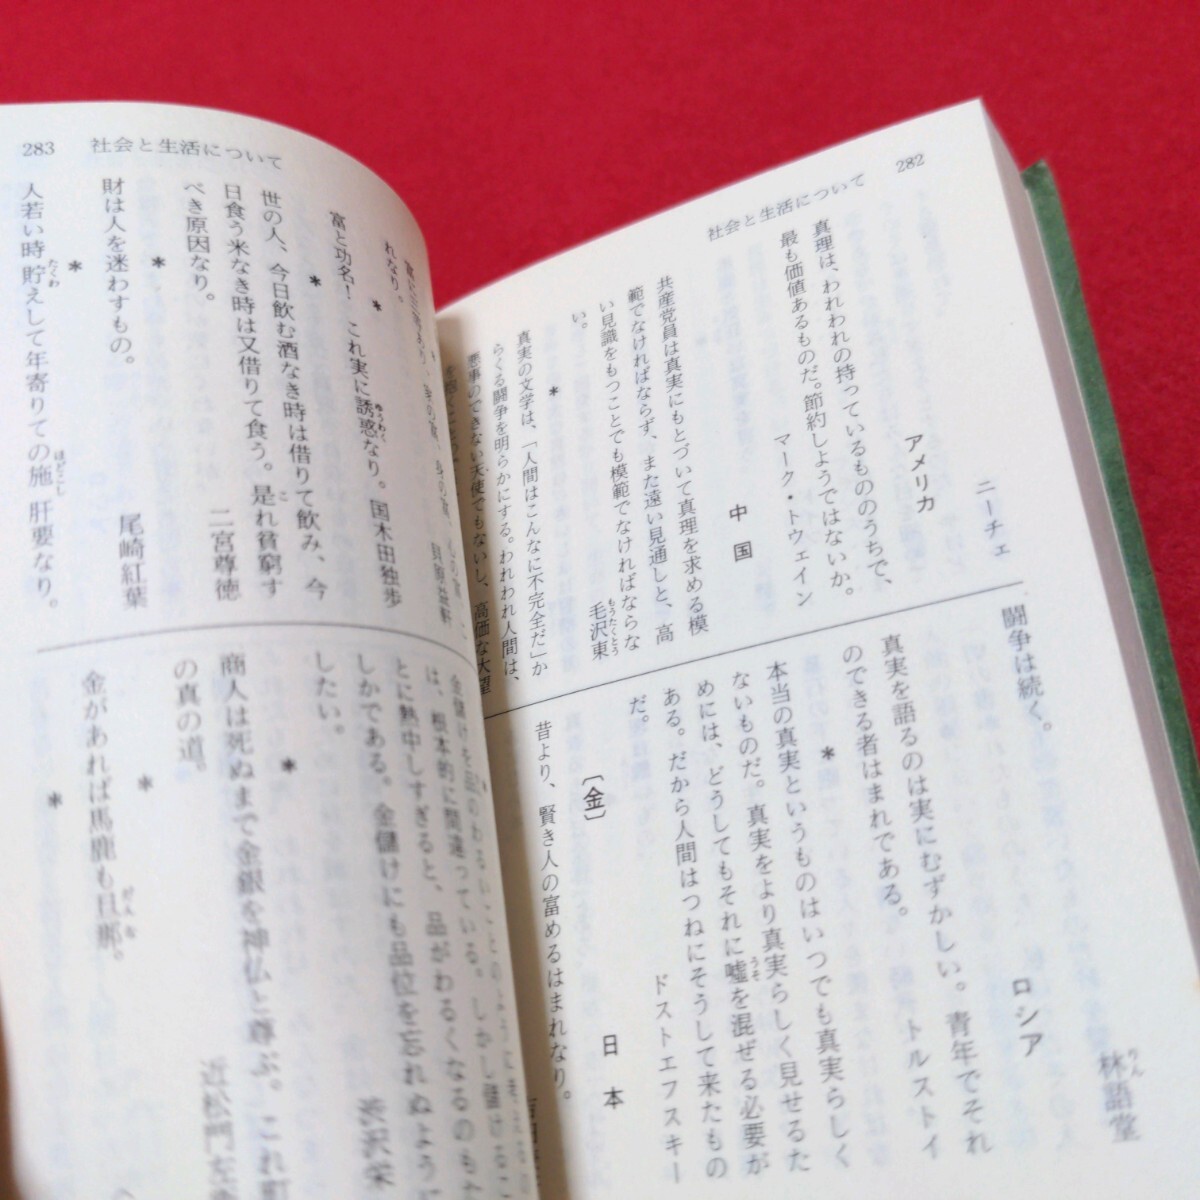 282
社会と生活について
ニーチェ
アメリカ
真理は、われわれの持っているもののうちで、
最も価値あるものだ。節約しようではないか。
マーク・トウェイン
中国
共産党員は真実にもとづいて真理を求める模
範でなければならず、また遠い見通しと、高
い見識をもつことでも模範でなければならな
い。
毛沢東
もうたくとう
*
真実の文学は、「人間はこんなに不完全だ」か
らくる闘争を明らかにする。われわれ人間は、
悪事のできない天使でもないし、高価な大望
闘争は続く。
林語堂
りん
ロシア
真実を語るのは実にむずかしい。青年でそれ
のできる者はまれである。
トルストイ
*
本当の真実というものはいつでも真実らしく
ないものだ。真実をより真実らしく見せるた
めには、どうしてもそれに嘘を混ぜる必要が
うそ
ある。だから人間はつねにそうして来たもの
だ。
ドストエフスキー
〔金〕
日本
昔より、賢き人の富めるはまれなり。
283
社会と生活について
れなり。
*
富と功名！　これ実に誘惑なり。国木田独歩
ゆうわく
*
世の人、今日飲む酒なき時は借りて飲み、今
日食う米なき時は又借りて食う。是れ貧窮す
こ
べき原因なり。
二宮尊徳
*
財は人を迷わすもの。
尾崎紅葉
*
人若い時貯えして年寄りての施肝要なり。
たくわ
ほどこし
は、根本的に間違っている。しかし儲けるこ
とに熱中しすぎると、品がわるくなるのもた
しかである。金儲けにも品位を忘れぬように
したい。
渋沢栄
*
商人は死ぬまで金銀を神仏と尊ぶ。これ町
の真の道。
近松門左
*
金があれば馬鹿も旦那。
だんな
*